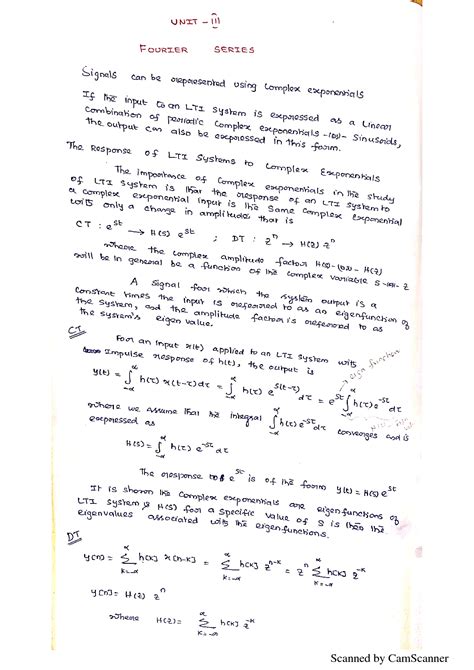 UNIT - III
FOURIER SERIES
Signals can be represented using complex exponentials
If the input to an LTI system is expressed as a linear
combination of periodic complex exponentials -(or)- sinusoids,
the output can also be expressed in this form.
The Response of LTI Systems to Complex Exponentials
The importance of complex exponentials in the study
of LTI system is that the response of an LTI system to
a complex exponential input is the same complex exponential
with only a change in amplitude; that is
CT : e^{st} → H(s) e^{st} ; DT : z^n → H(z) z^n
where the complex amplitude factor H(s) -(or)- H(z)
will be in general be a function of the complex variable s -(or)- z
A signal for which the system output is a
constant times the input is referred to as an eigenfunction of
the system, and the amplitude factor is referred to as
the system's eigen value.
CT
For an input x(t) applied to an LTI system with
impulse response of h(t), the output is
eigen function
y(t) = ∫_{-α}^{α} h(τ) x(t-τ) dτ = ∫_{-α}^{α} h(τ) e^{s(t-τ)} dτ = e^{st} ∫_{-α}^{α} h(τ) e^{-sτ} dτ
where we assume that the integral ∫ h(τ) e^{-sτ} dτ converges and is
expressed as
H(s) = ∫_{-α}^{α} h(τ) e^{-sτ} dτ
The response to e^{st} is of the form y(t) = H(s) e^{st}
It is shown the complex exponentials are eigenfunctions of
LTI system & H(s) for a specific value of s is then the
eigenvalues associated with the eigenfunctions.
DT
y[n] = Σ_{k=-α}^{α} h[k] x[n-k] = Σ_{k=-α}^{α} h[k] z^{n-k} = z^n Σ_{k=-α}^{α} h[k] z^{-k}
y[n] = H(z) z^n
where H(z) = Σ_{k=-α}^{α} h[k] z^{-k}
Scanned by CamScanner